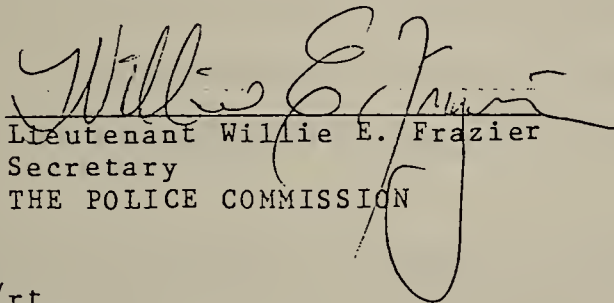 Willie E. Frazier
Lieutenant Willie E. Frazier
Secretary
THE POLICE COMMISSION
/rt